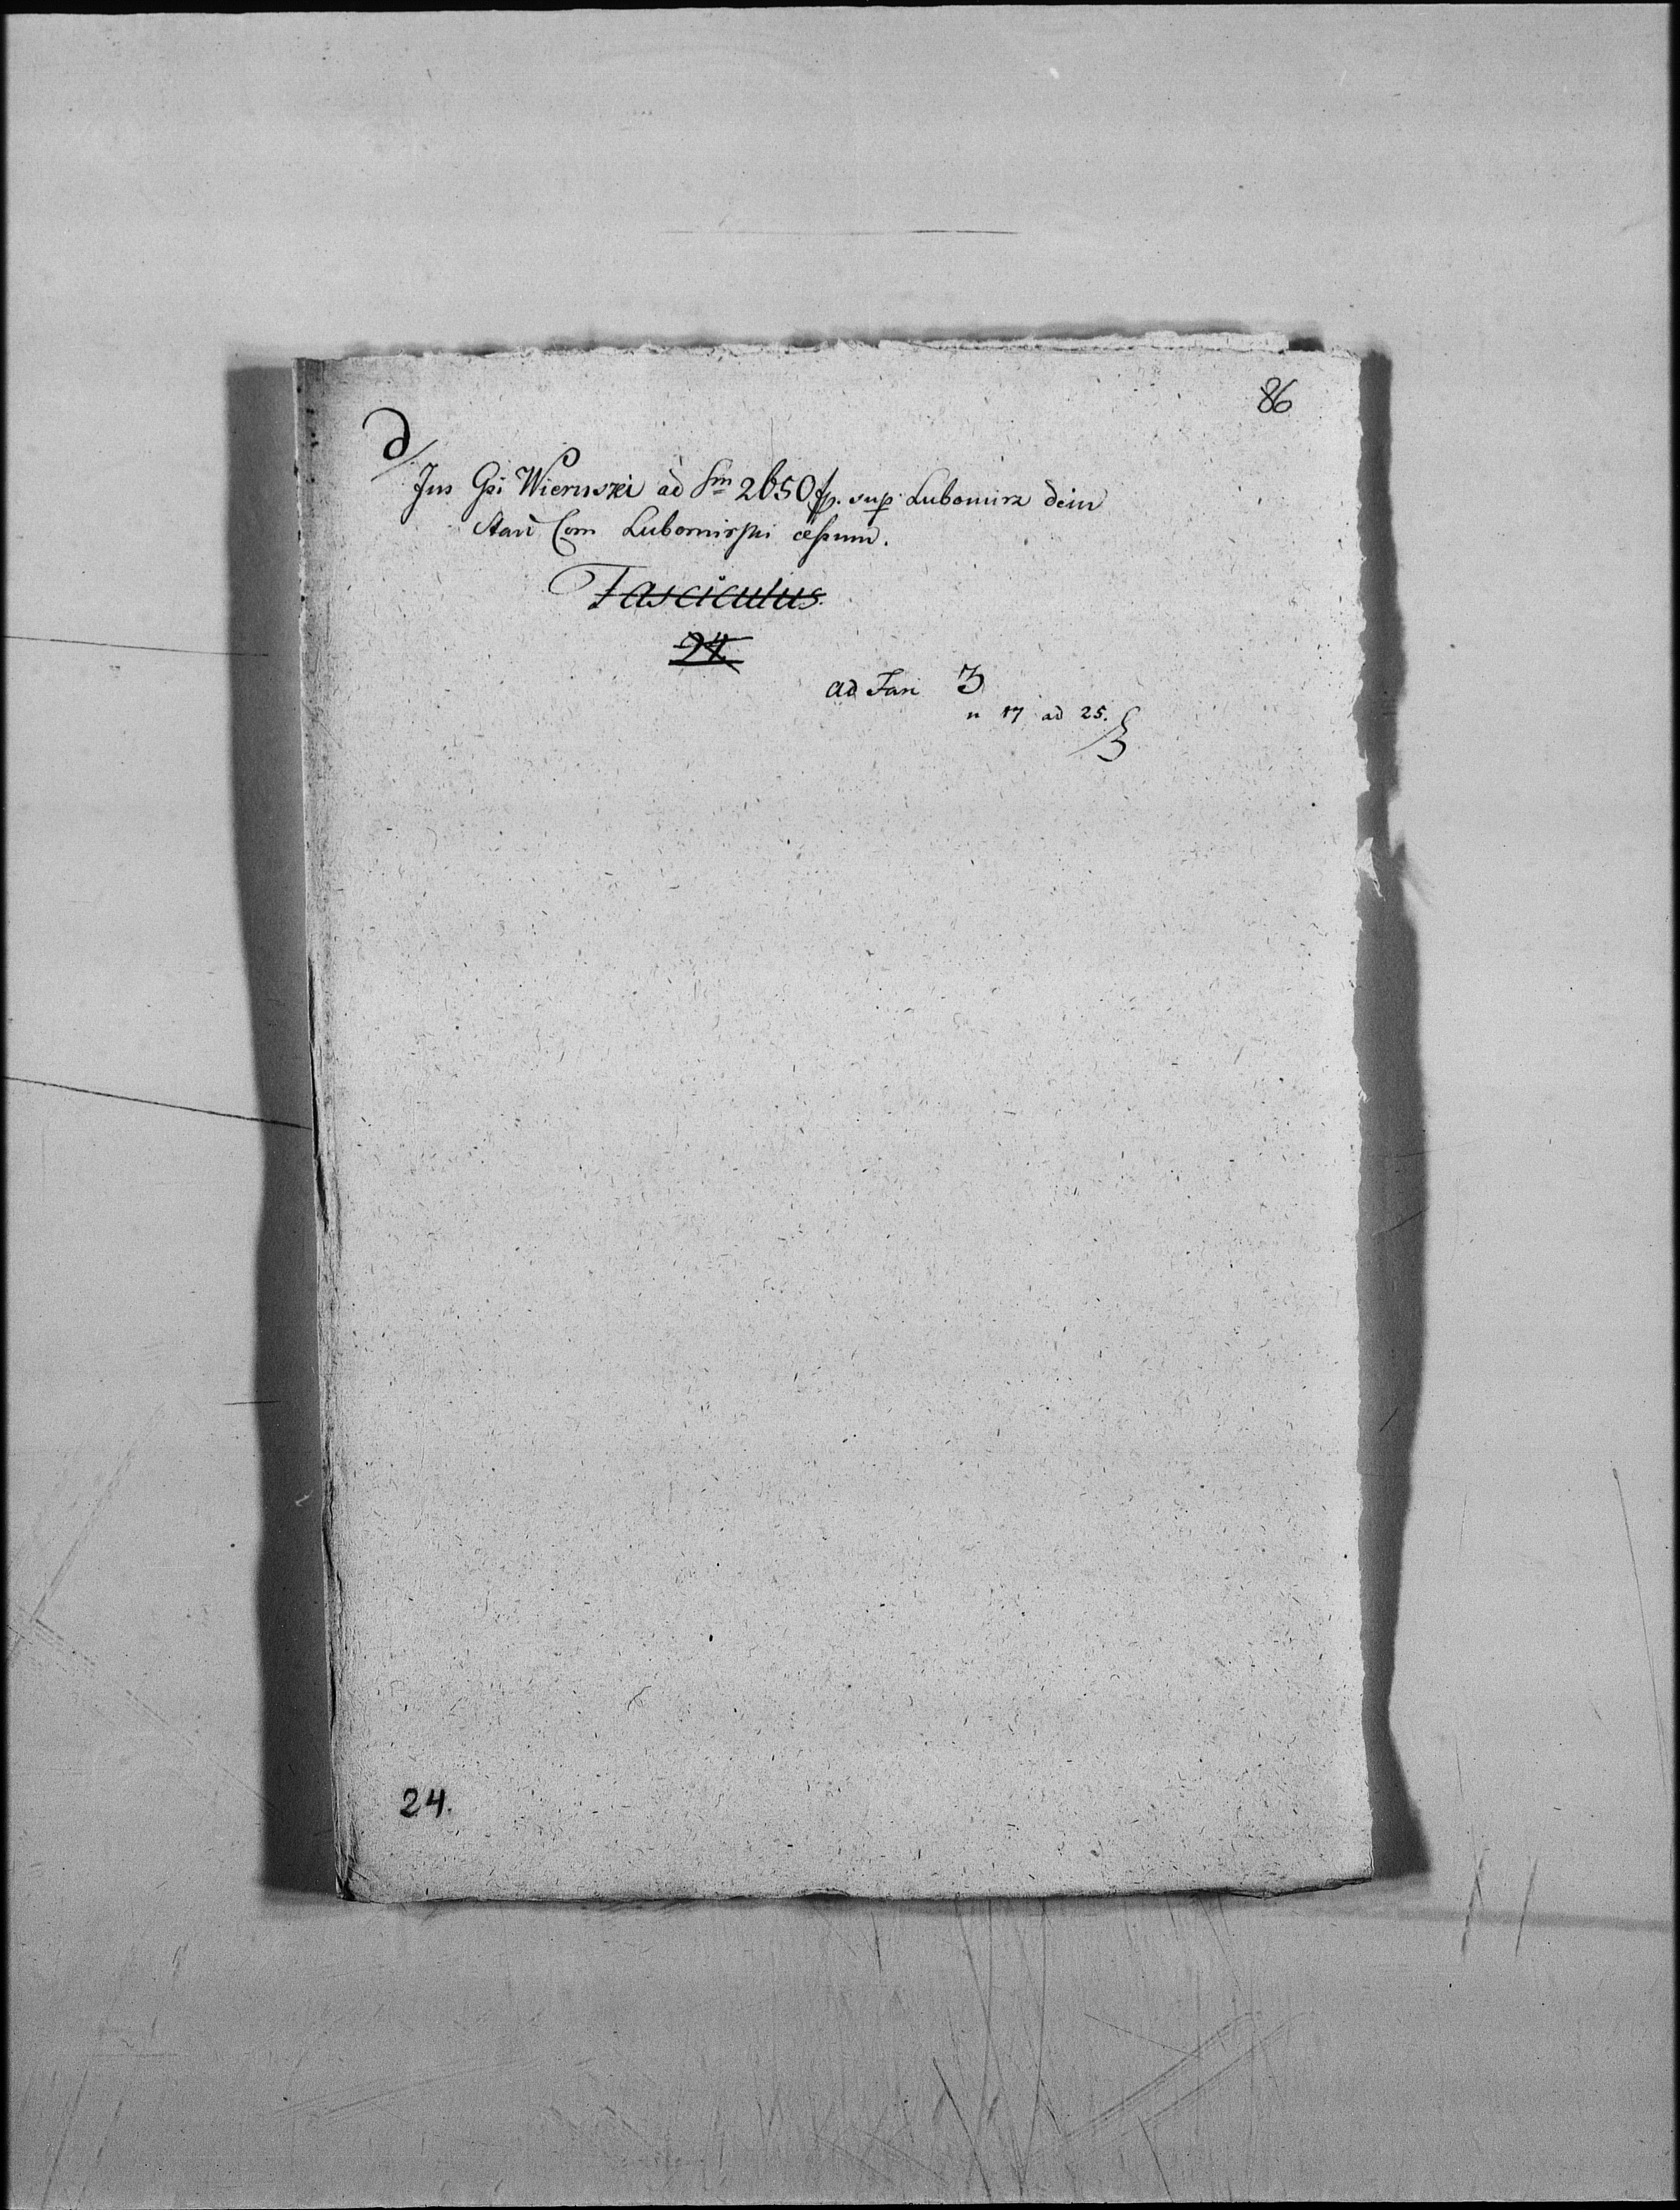 86
d/
Jus Gsi Wieruszki ad Sm 2650 fp. sup Lubomirz dein
Stan Com Lubomirski cessum.
Fasciculus
24.
ad Fasc 3
n 17 ad 25.
24.